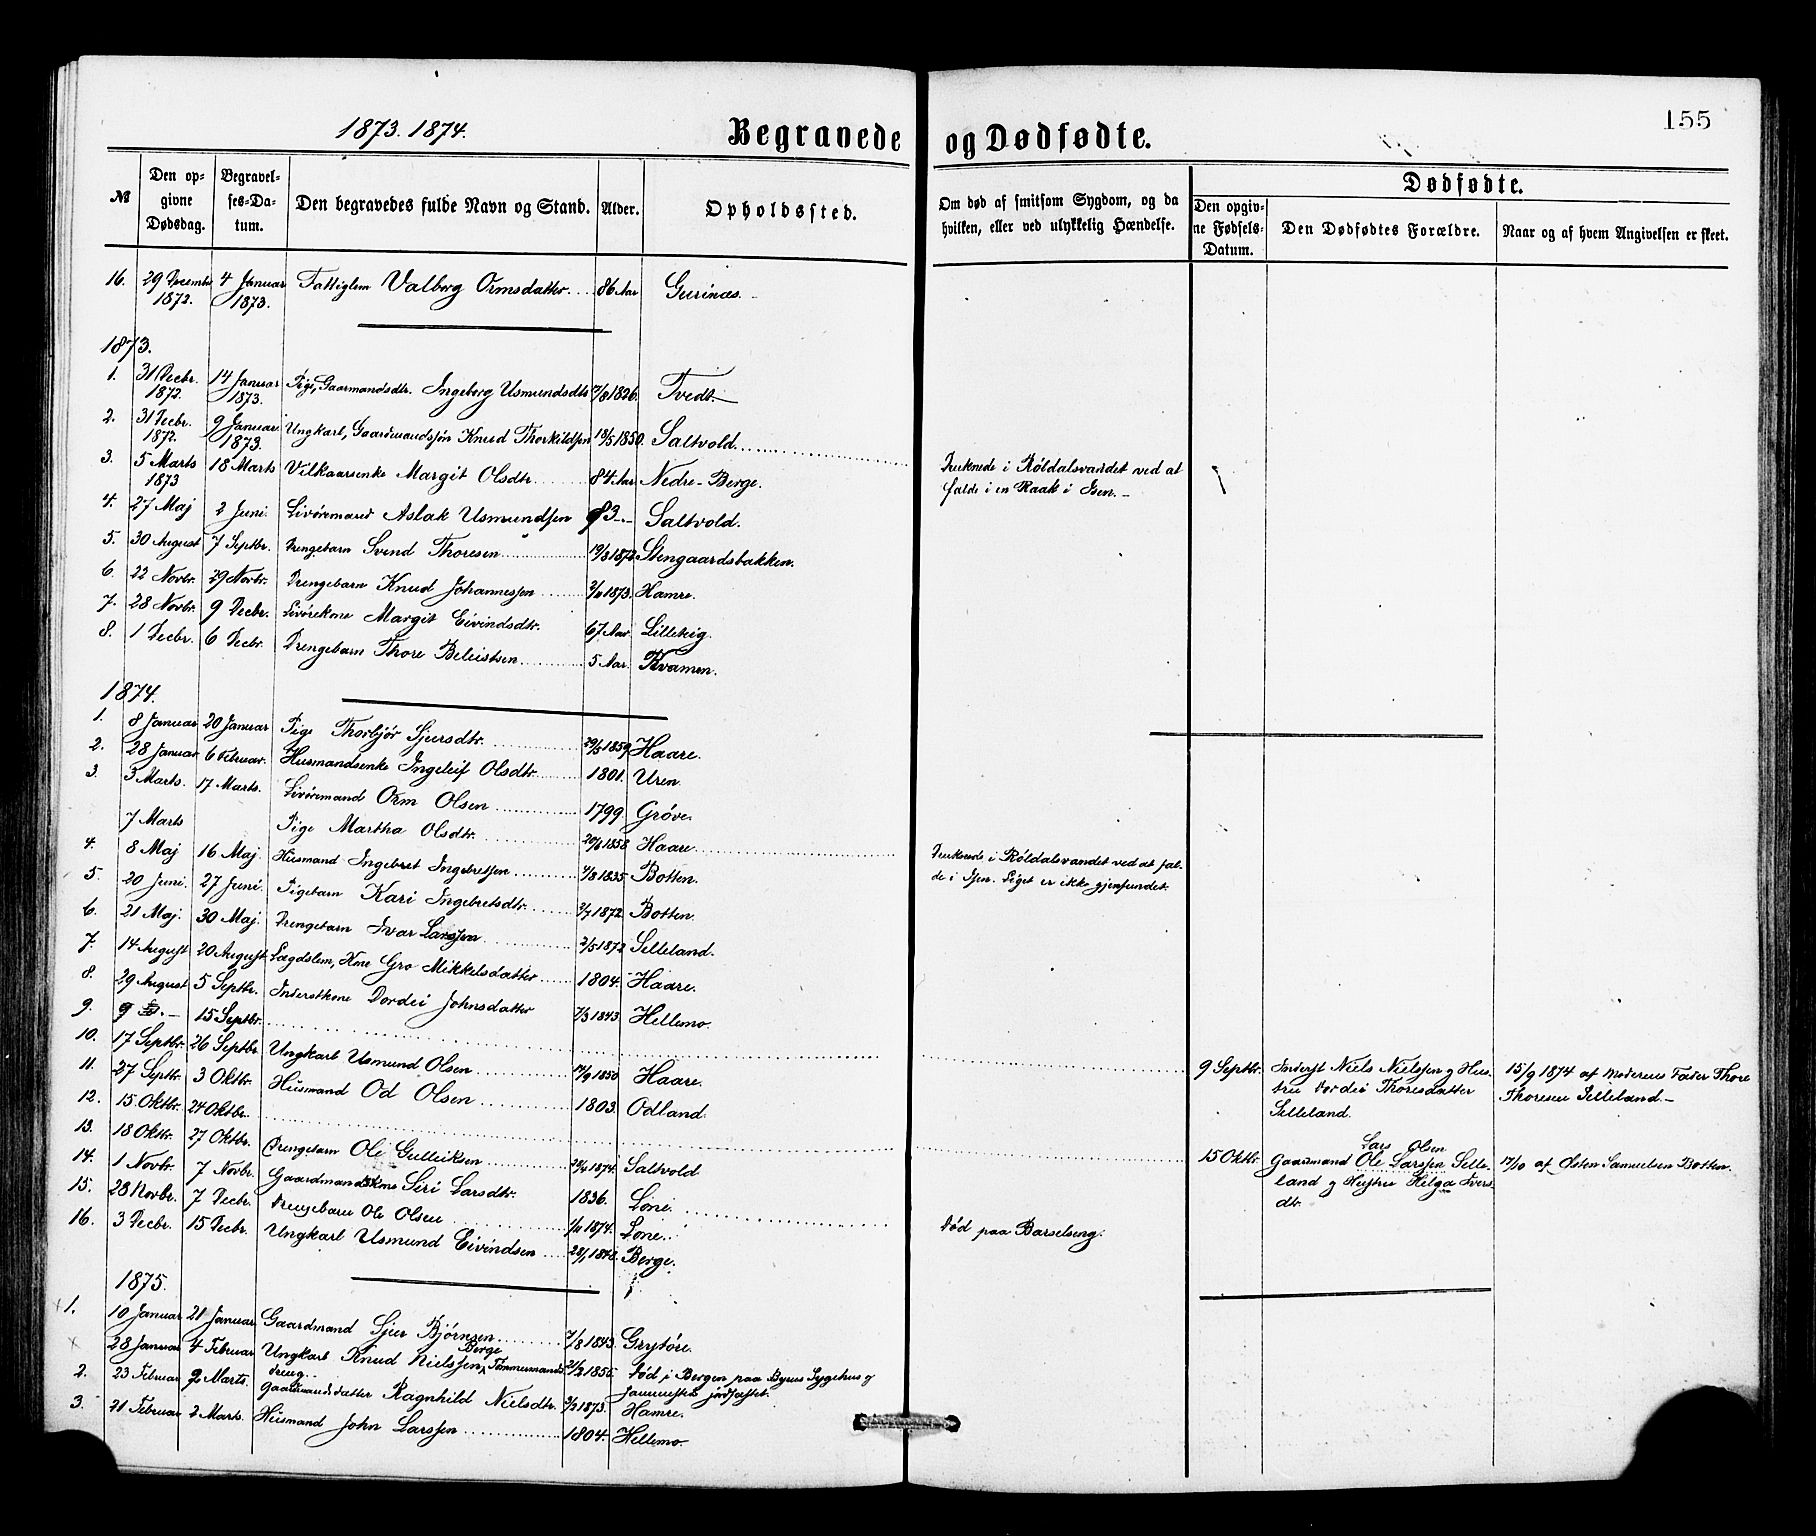 1873. 1874.
Begravede og Dødfødte.
155
№
Den opgivne Dødsdag.
Begravelses-Datum.
Den begravedes fulde Navn og Stand.
Alder.
Opholdssted.
Om død af smitsom Sygdom, og da hvilken, eller ved ulykkelig Hændelse.
Dødfødte.
Den opgivne Fødsels-Datum.
Den Dødfødtes Forældre.
Naar og af hvem Angivelsen er skeet.
16. 29 Decembr 1872. 4 Januar 1873. Fattiglem Valborg Ormsdatter. 86 Aar Gurinæs.
1873.
1. 31 Decbr. 1872. 14 Januar 1873. Pige, Gaarmandsdtr. Ingeborg Usmundsdtr /8 1826. Tvedt.
2. 31 Decbr. 1872. 9 Januar 1873. Ungkarl, Gaardmandssøn Knud Thorkildsen 18/5 1850. Saltvold.
Druknede i Røldalsvandet ved at falde i en Raak i Isen.
3. 5 Marts 1873 18 Marts Vilkaarsenke Margit Olsdtr. 84 Aar Nedre-Berge.
4. 27 Maj 2 Juni. Livøremand Aslak Usmundsen 83 -"- Saltvold.
5. 30 August 7 Septbr. Drengebarn Svend Thoresen 19/3 1872 Stengaardsbakken.
6. 22 Novbr. 29 Novbr. Drengebarn Knud Johannessen 1873. Hamre.
7. 28 Novbr. 9 Decbr. Livørekone Margit Eivindsdtr. 67 Aar. Lilleteig.
8. 1 Decbr. 6 Decbr. Drengebarn Thore Beleistsen 5 Aar. Kvamen.
1874.
1. 8 Januar 20 Januar Pige Thorbjør Sjursdtr. 29/5 1859. Haare.
2. 28 Januar 6 Februar. Husmandsenke Ingeleif Olsdtr. 1801. Uren.
3. 3 Marts. 17 Marts. Livøremand Orm Olsen 1799. Grøve.
7 Marts Pige Martha Olsdtr. 1858 Haare.
Druknede i Røldalsvandet ved at falde i Isen. Liget er ikke gjenfundet.
4. 8 Maj 16 Maj. Husmand Ingebret Ingebretsen /8 1835 Botten.
5. 20 Juni. 27 Juni. Pigebarn Kari Ingebretsdtr. 2/7 1872 Botten.
6. 21 Maj. 30 Maj. Drengebarn Ivar Larssen 2/5 1872 Selleland.
7. 14 August 20 August Lægdslem, Kone Gro Mikkelsdatter 1804. Haare.
8. 29 August 5 Septbr. Inderstkone Dordei Johnsdatter 7/3 1843. Hellemo.
9. 9 15 Septbr.
9 Septbr. Inderst Niels Nielssen og Hustru Dordei Thoresdatter Selleland.
15/9 1874 af Moderens Fader Thore Thoresen Selleland.
10. 17 Septbr. 26 Septbr. Ungkarl Usmund Olsen /9 1850 Haare.
11. 27 Septbr. 3 Oktbr. Husmand Od Olsen 1803. Odland.
12. 15 Oktbr. 24 Oktbr.
15 Oktbr. Gaardmand Ole Larssen Lars Olsen Selleland og Hustru Helga Iversdtr.
17/10 af Østen Samuelsen Botten.
13. 18 Oktbr. 27 Oktbr. Drengebarn Ole Gulleiksen 1874. Saltvold
14. 1 Novbr. 7 Novbr. Gaardmandskone Siri Larsdtr. 1836. Løne.
Død paa Barselseng.
15. 28 Novbr. 7 Decbr. Drengebarn Ole Olsen 1874. Løne.
16. 3 Decbr. 15 Decbr. Ungkarl Usmund Eivindsen 28/1 1848. Berge.
1875.
1. 10 Januar 21 Januar Gaardmand Sjur Bjørnsen 7/8 1843. Grytøre.
28 Januar 4 Februar Ungkarl Knud Nielssen Berge, Tømmermand 21/2 1855. Død i Bergen paa Byens Sygehus og sammesteds jordfæstet.
2. 23 Februar 2 Marts. Gaardmandsdatter Ragnhild Nielsdtr. 1873. Hamre.
3. 21 Februar 2 Marts. Husmand John Larssen 1804. Hellemo.